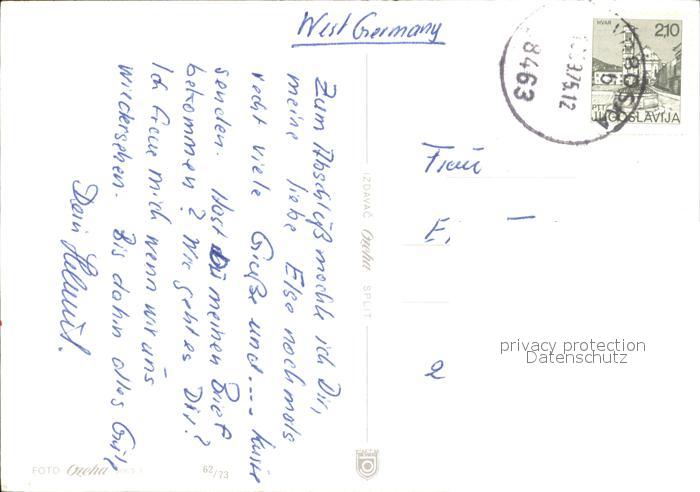 West Germany
Zum Abschluß möchte ich Dir,
meine liebe Else nochmals
recht viele Grüße und .... Küsse
senden. Hast Du meinen Brief
bekommen? Wie geht es Dir?
Ich freue mich wenn wir uns
wiedersehen. Bis dahin alles Gute
Dein Helmut.
HVAR
2,10
PTT
JUGOSLAVIJA
58463
75.12
Frau
E.
2
privacy protection
Datenschutz
IZDAVAČ Ozeha SPLIT
FOTO Ozeha
62/73